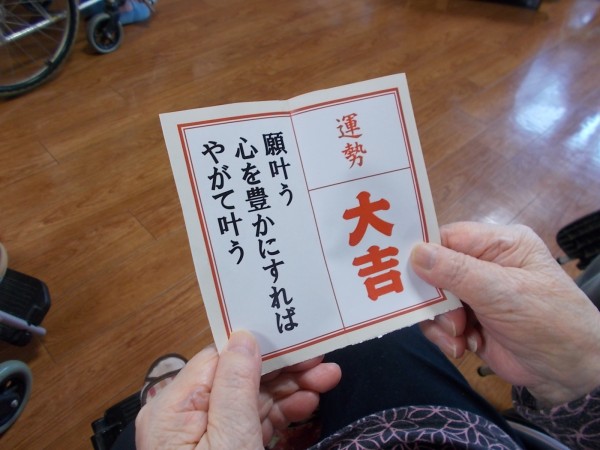 運勢
大吉
願叶う
心を豊かにすれば
やがて叶う